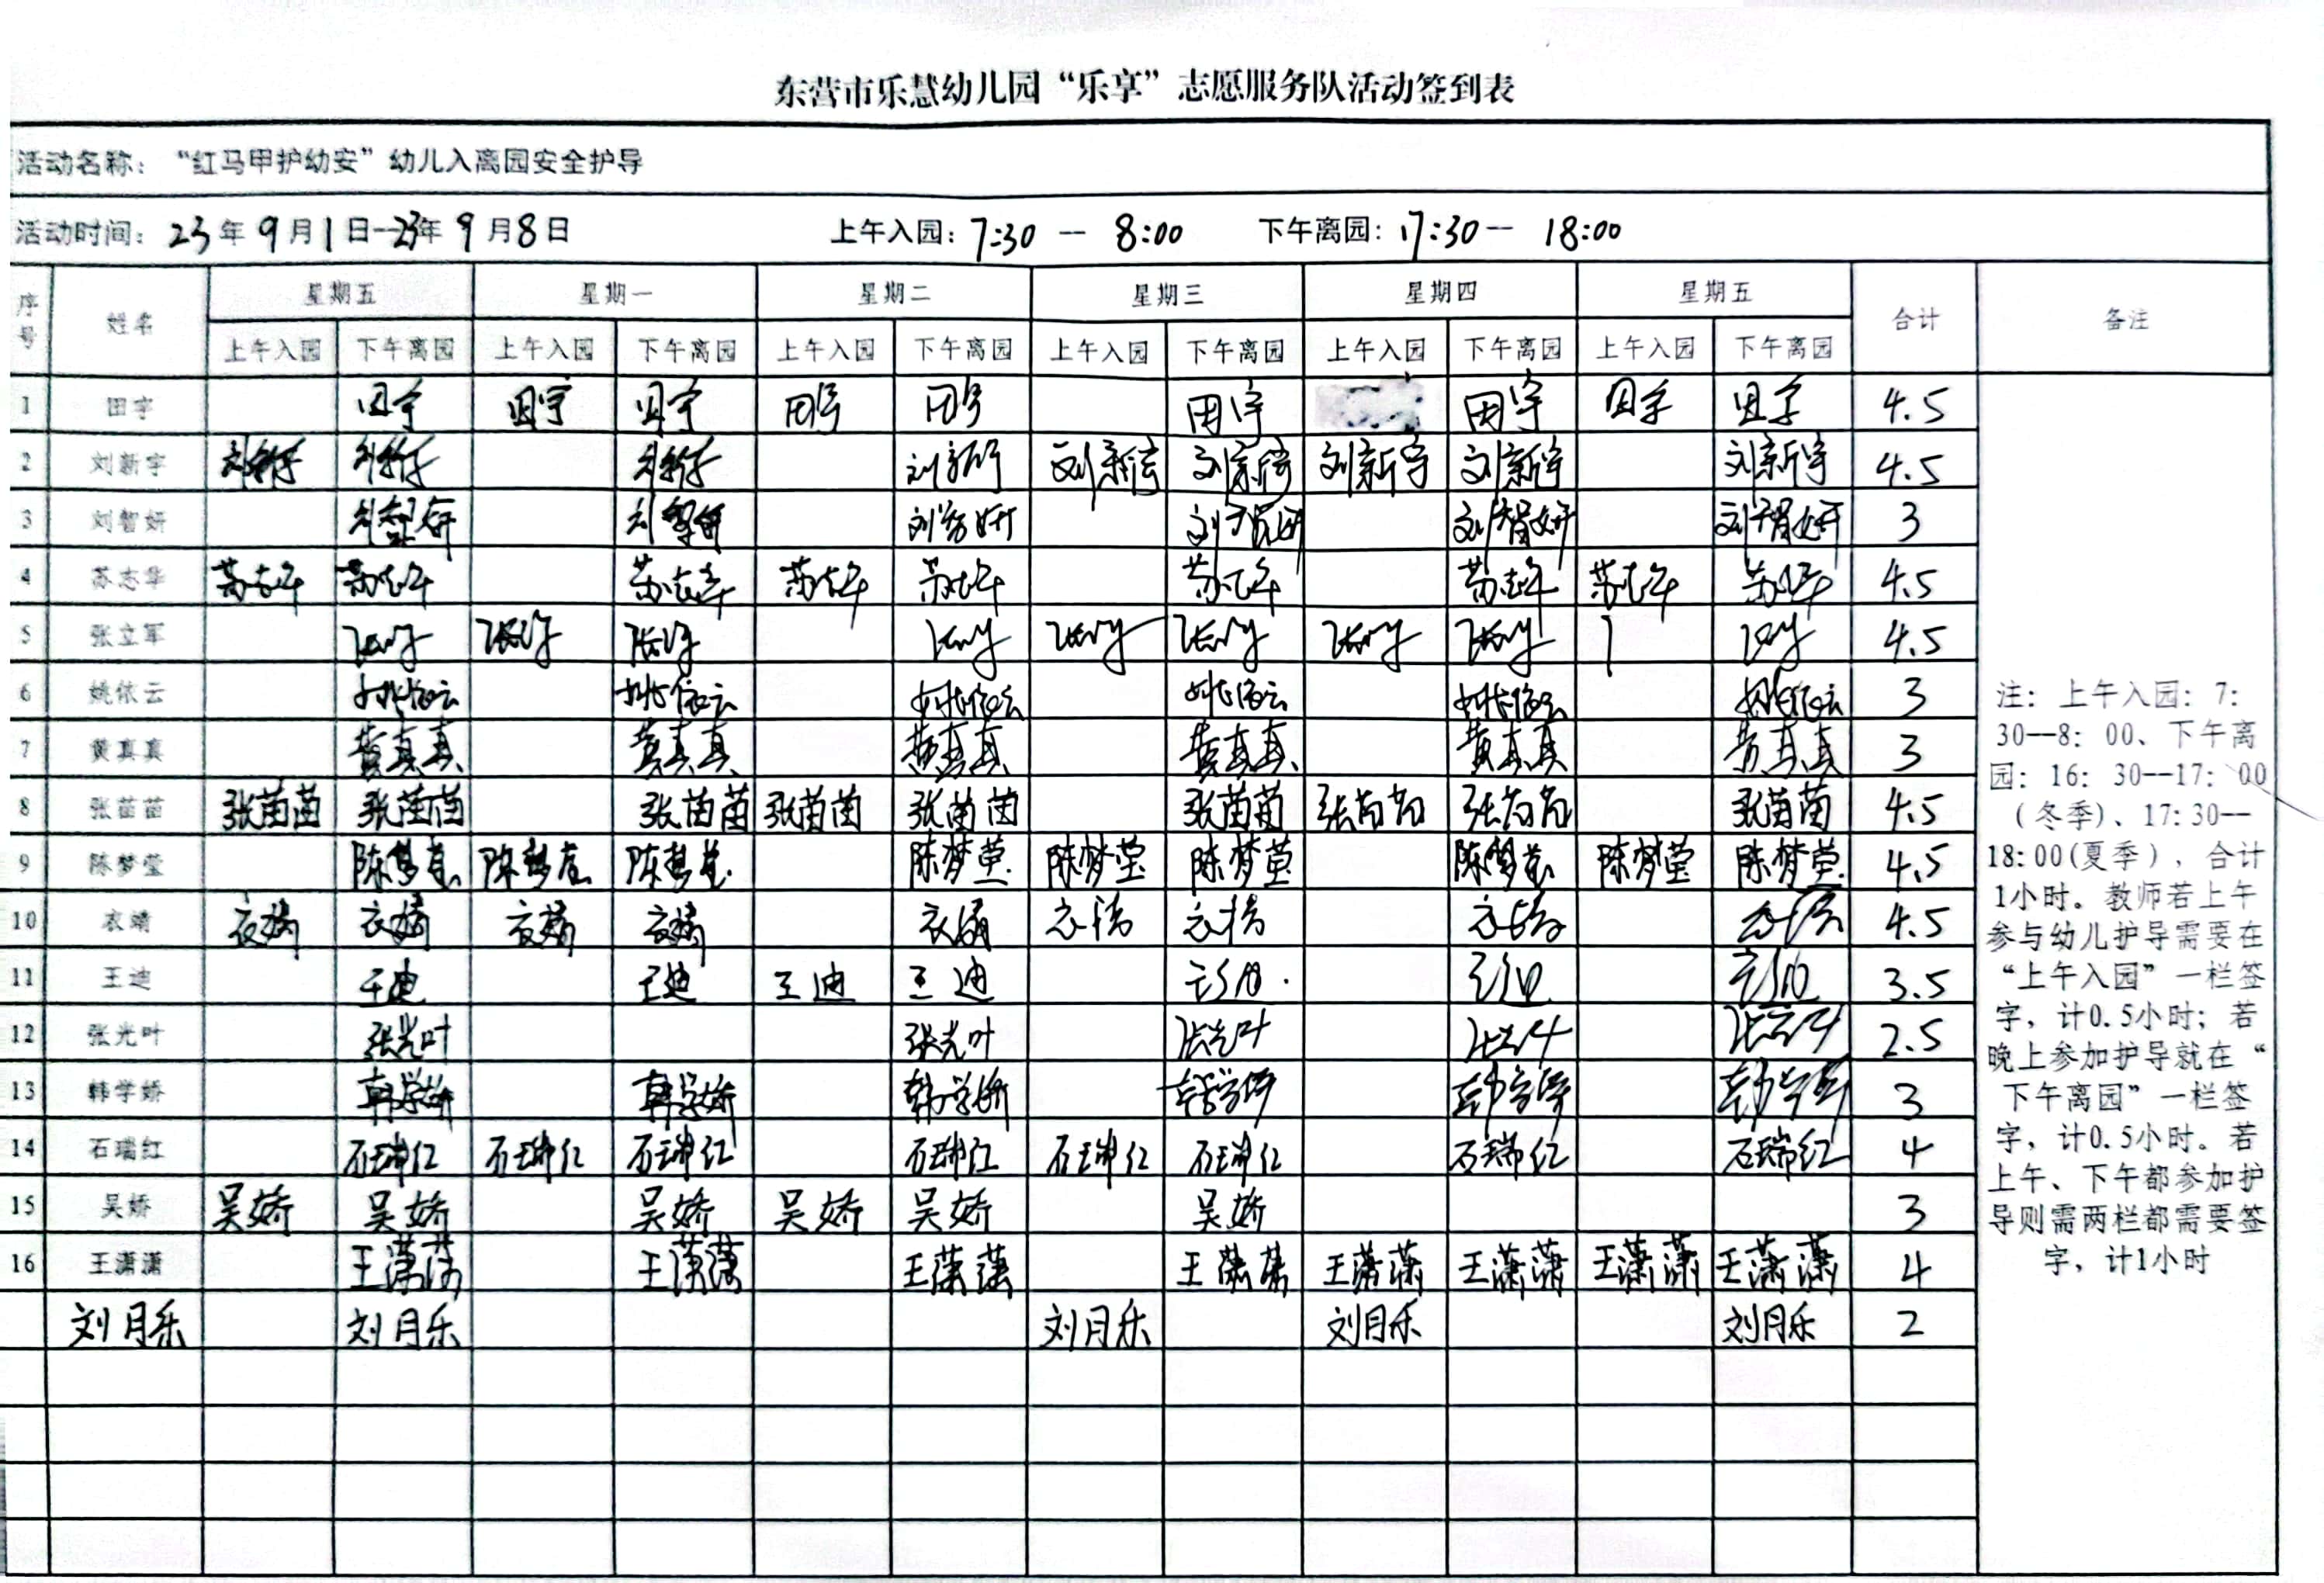 东营市乐慧幼儿园“乐享”志愿服务队活动签到表
活动名称：“红马甲护幼安”幼儿入离园安全护导
活动时间：23年9月1日—23年9月8日 上午入园：7:30 — 8:00 下午离园：17:30 — 18:00
序号 姓名 星期五 星期一 星期二 星期三 星期四 星期五 合计 备注
上午入园 下午离园 上午入园 下午离园 上午入园 下午离园 上午入园 下午离园 上午入园 下午离园 上午入园 下午离园
1 田宇 田宇 田宇 田宇 田宇 田宇 田宇 田宇 田宇 田宇 4.5
2 刘新宇 刘新宇 刘新宇 刘新宇 刘新宇 刘新宇 刘新宇 刘新宇 刘新宇 刘新宇 4.5
3 刘智妍 刘智妍 刘智妍 刘智妍 刘智妍 刘智妍 刘智妍 3
4 苏志华 苏志华 苏志华 苏志华 苏志华 苏志华 苏志华 苏志华 苏志华 苏志华 4.5
5 张立军 张立军 张立军 张立军 张立军 张立军 张立军 张立军 张立军 张立军 4.5
6 姚依云 姚依云 姚依云 姚依云 姚依云 姚依云 姚依云 3
7 黄真真 黄真真 黄真真 黄真真 黄真真 黄真真 黄真真 3
8 张苗苗 张苗苗 张苗苗 张苗苗 张苗苗 张苗苗 张苗苗 张苗苗 张苗苗 张苗苗 4.5
9 陈梦莹 陈梦莹 陈梦莹 陈梦莹 陈梦莹 陈梦莹 陈梦莹 陈梦莹 陈梦莹 陈梦莹 4.5
10 衣婧 衣婧 衣婧 衣婧 衣婧 衣婧 衣婧 衣婧 衣婧 衣婧 4.5
11 王迪 王迪 王迪 王迪 王迪 王迪 王迪 王迪 3.5
12 张光叶 张光叶 张光叶 张光叶 张光叶 张光叶 2.5
13 韩学娇 韩学娇 韩学娇 韩学娇 韩学娇 韩学娇 韩学娇 3
14 石瑞红 石瑞红 石瑞红 石瑞红 石瑞红 石瑞红 石瑞红 石瑞红 石瑞红 4
15 吴娇 吴娇 吴娇 吴娇 吴娇 吴娇 吴娇 3
16 王潇潇 王潇潇 王潇潇 王潇潇 王潇潇 王潇潇 王潇潇 王潇潇 王潇潇 4
刘月乐 刘月乐 刘月乐 刘月乐 刘月乐 2
注：上午入园：7：
30—8：00、下午离
园：16：30—17：00
（冬季）、17:30—
18:00(夏季），合计
1小时。教师若上午
参与幼儿护导需要在
“上午入园”一栏签
字，计0.5小时；若
晚上参加护导就在“
下午离园”一栏签
字，计0.5小时。若
上午、下午都参加护
导则需两栏都需要签
字，计1小时